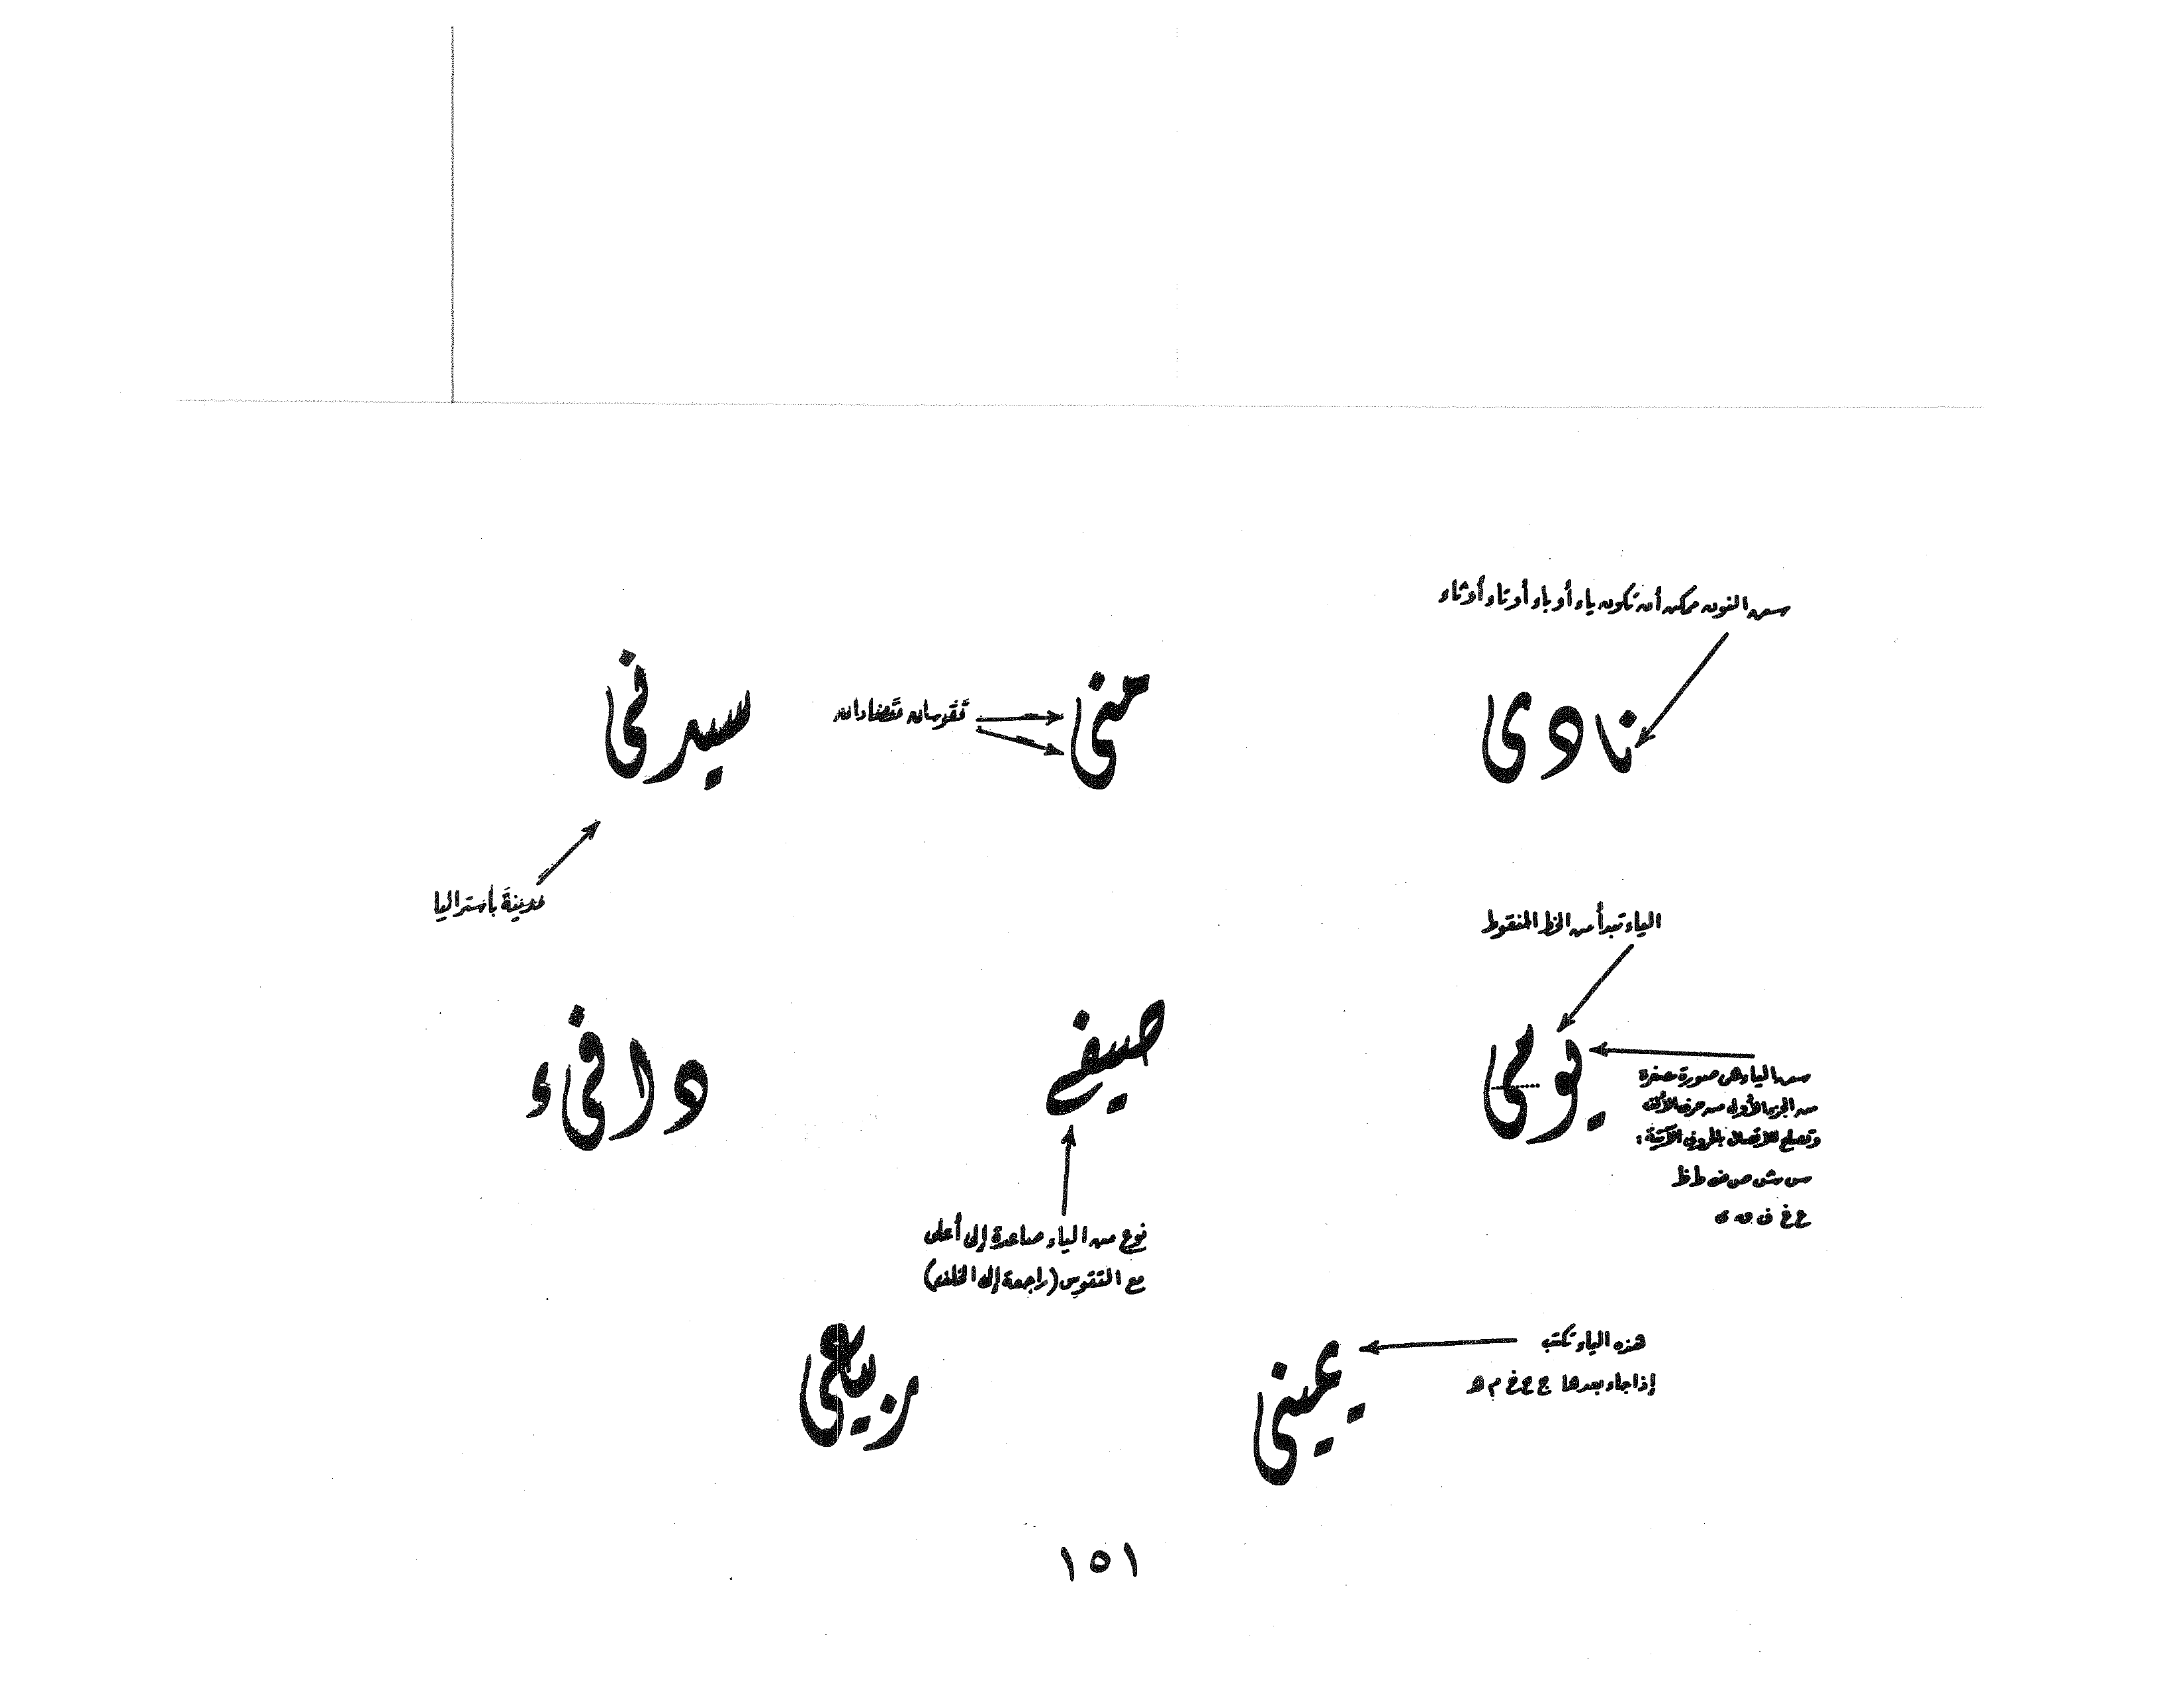 سن النون ممكن أن تكون ياء أو باء أو تاء أو ثاء
نادى
منى
تقوسان متضادان
سيدنى
مدينة بأستراليا
الياء تبدأ من الخط المنقوط
يومى
سن الياء هى صورة مصغرة
من الجزء الأول من حرف الألف
وتصلح للاتصال بالحروف الآتية :
س ش ص ض ط ظ
ع غ ف ق ى
صيفى
نوع من الياء صاعدة إلى أعلى
مع التقوس (راجعة إلى الخلف)
دافىء
هذه الياء تكتب
إذا جاء بعدها ج ح خ م هـ
يمينى
ربيعى
١٥١